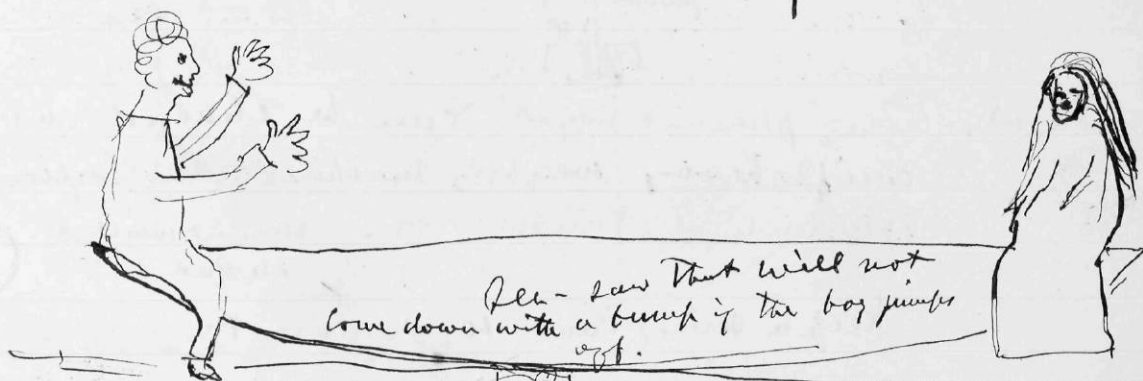 See-saw that will not
come down with a bump if the boy jumps
off.